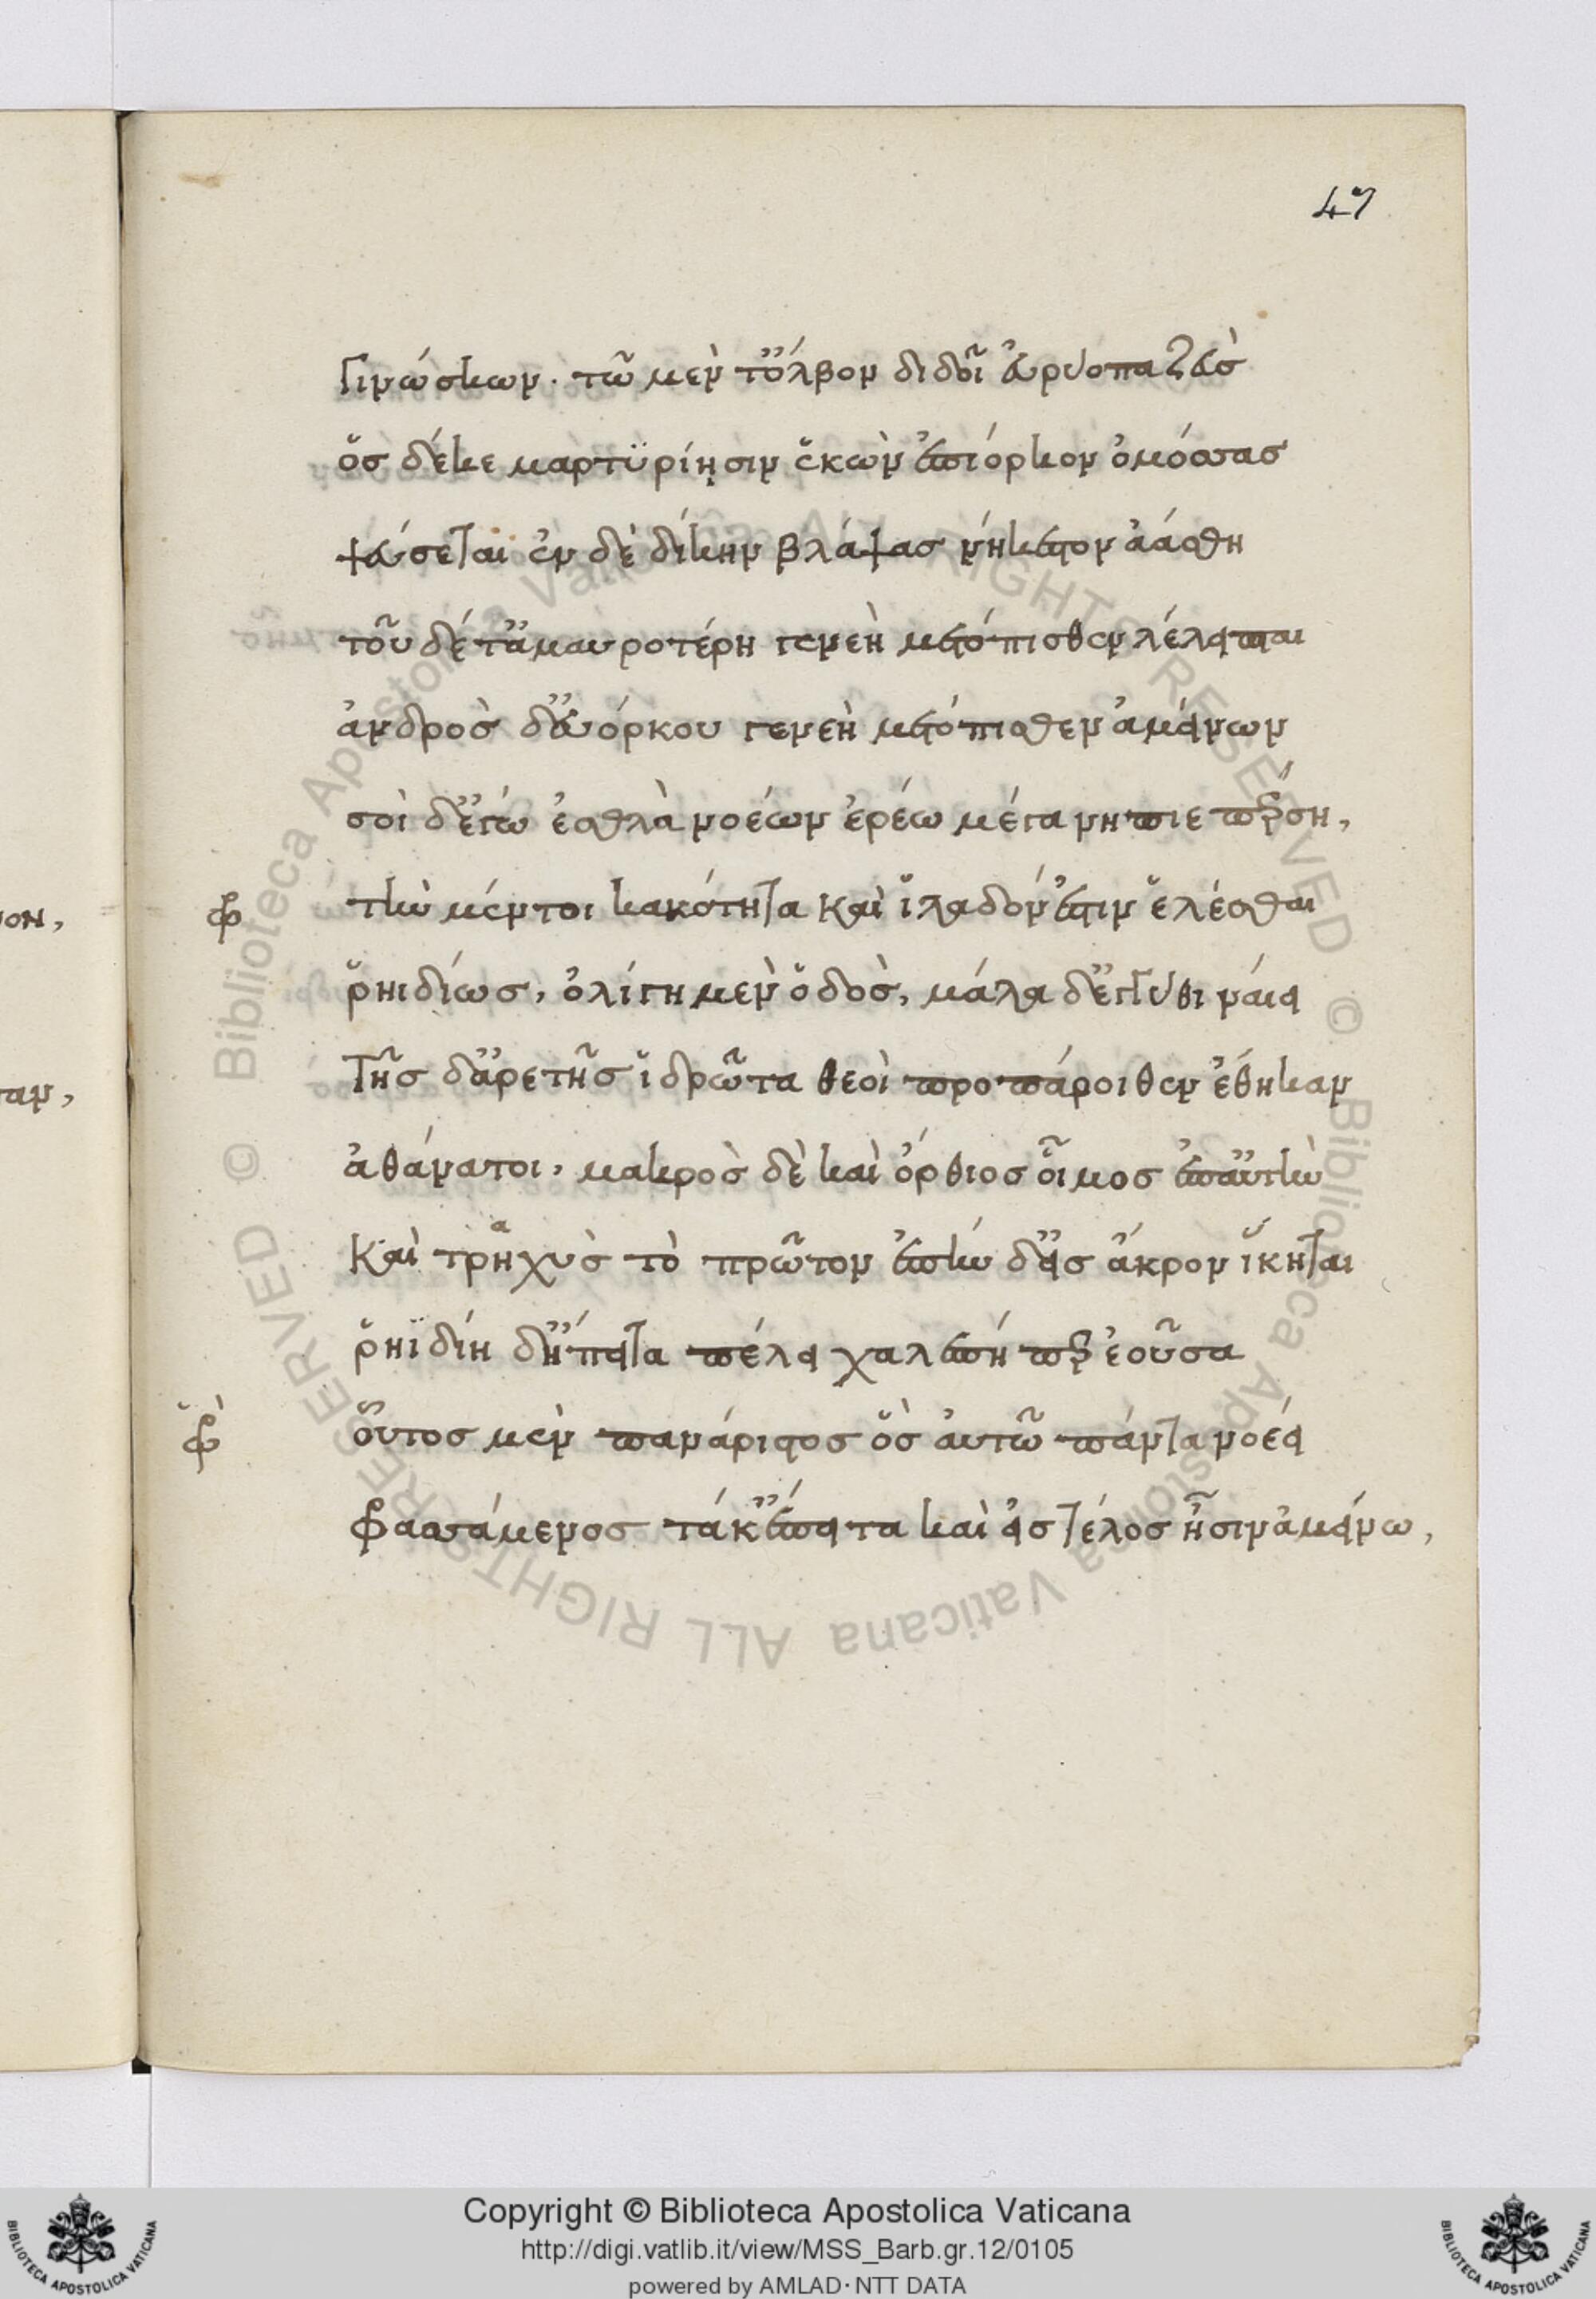 47
Γινώσκων. τῶ μὲν τ' ὄλβον διδοῖ εὐρύοπα ζεὺσ
ὅσ δέ κε μαρτϋρίησιν ἑκὼν ἐπιόρκον ὀμόσσασ
ψεύσεται ἐν δὲ δίκην βλάψασ νήκεστον ἀάσθη
τοῦ δέ τ' ἀμαυροτέρη γενεὴ μετόπισθεν λέλειπται
ἀνδρὸσ δ' εὐόρκου γενεὴ μετόπισθεν ἀμείνων
σοὶ δ' ἐγώ ἐσθλὰ νοέων ἐρέω μέγα νήπιε πέρση,
τὴν μέντοι κακότητα καὶ ἰλαδόν ἐστιν ἑλέσθαι
ῥηιδίωσ, ὀλίγη μὲν ὁδὸσ, μάλα δ' ἐγγύθι ναίει
Τῆσ δ' ἀρετῆσ ἱδρῶτα θεοὶ προπάροιθεν ἔθηκαν
ἀθάνατοι, μακρὸσ δὲ καὶ ὄρθιοσ οἶμοσ ἐπ' αὐτὴν
Καὶ τρηχὺσ τὸ πρῶτον ἐπὴν δ' εἰσ ἄκρον ἵκηται
α
ῥηϊδίη δ' ἤπειτα πέλει χαλεπή περ ἐοῦσα
οὗτοσ μὲν πανάριστοσ ὃσ αὐτῶ πάντα νοέει
φρασσάμενοσ τά κ' ἔπειτα καὶ εἰσ τέλοσ ἦσιν ἀμείνω,
ον,
ταν,
Copyright © Biblioteca Apostolica Vaticana
http://digi.vatlib.it/view/MSS_Barb.gr.12/0105
powered by AMLAD·NTT DATA
© Biblioteca Apostolica Vaticana ALL RIGHTS RESERVED © Biblioteca Apostolica Vaticana ALL RIGHTS RESERVED
BIBLIOTECA APOSTOLICA VATICANA
BIBLIOTECA APOSTOLICA VATICANA